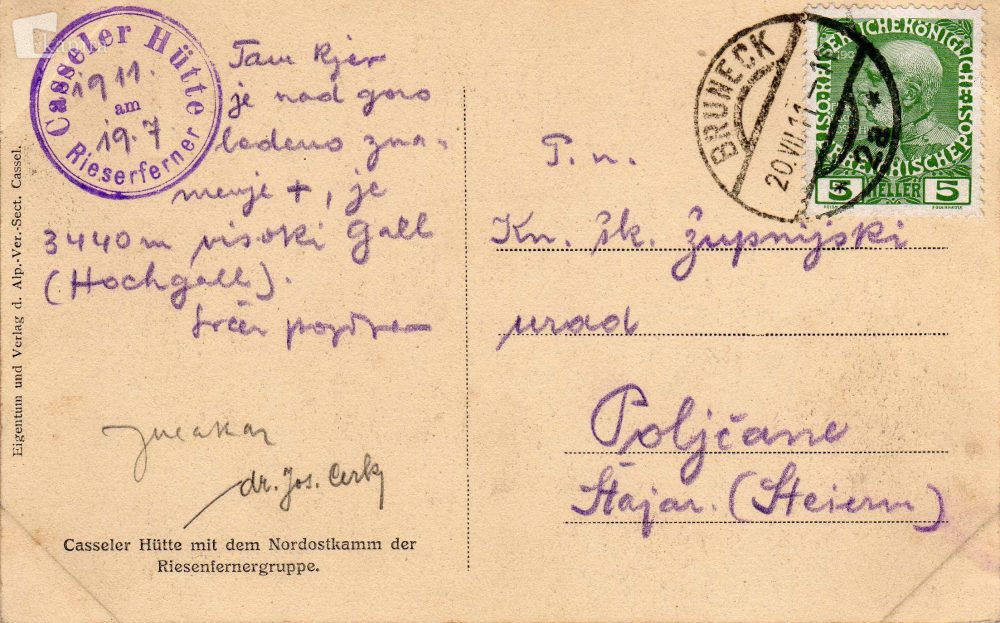 Casseler Hütte
1911.
am
19.7
Rieserferner
Tam kjer
je nad goro
ledeno zna-
menje +, je
3440m visoki Gall
(Hochgall).
Srčen pozdrav
dr. Jos. Cerk
Casseler Hütte mit dem Nordostkamm der
Riesenfernergruppe.
Eigentum und Verlag d. Alp.-Ver.-Sect. Cassel.
BRUNECK
20 VII 11
* 2a *
5 HELLER 5
T. n.
Kn. šk. župnijski
urad
Poljčane
Štajar. (Steierm)